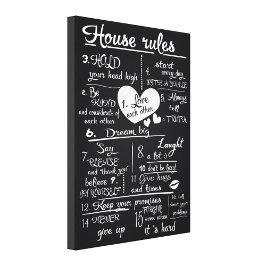 House rules
3. HOLD
your head high
4. start
every day
WITH A SMILE
2. Be
KIND
and considerate of
each other
1. Love
each other
5. Always
tell
TRUTH
6. Dream big
7 Say
PLEASE
and thank you
8 Laught
a lot :)
9 believe in
YOURSELF
10 don't be fooled
11 Give hugs
and kisses
12 Keep your promises
14 NEVER
give up
15
when
it's hard
We will
your
problems